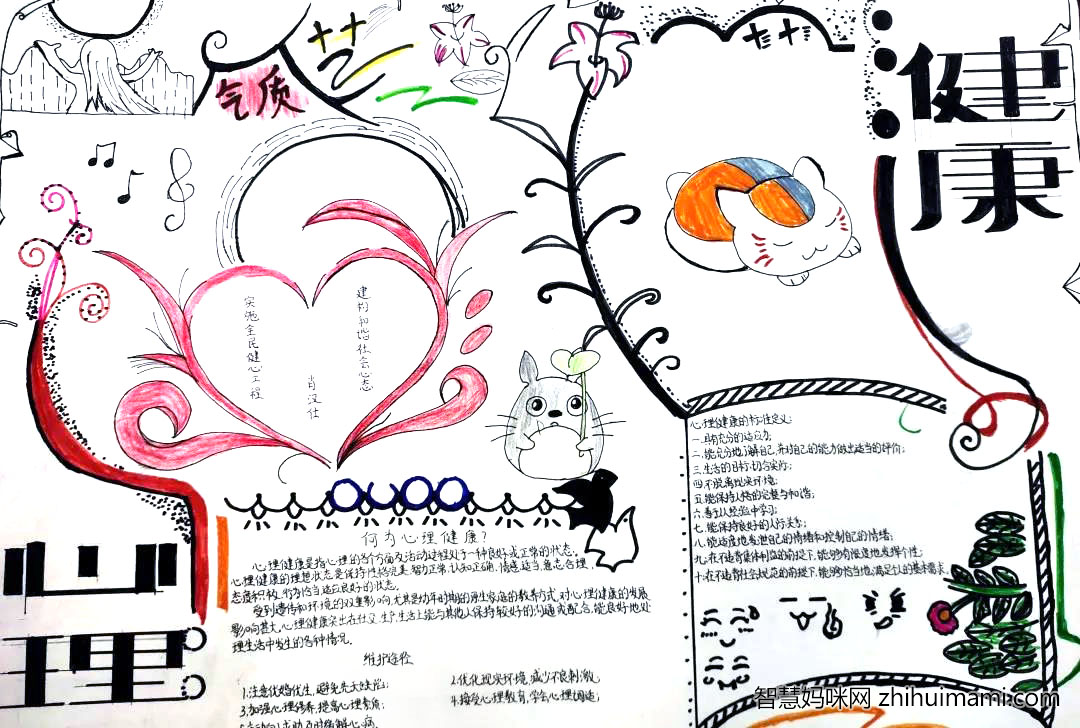 气质
艺
健康
心理
实施全民健心工程
建构和谐社会心态
肖汉仕
何为心理健康?
心理健康是指心理的各个方面及活动过程处于一种良好或正常的状态。
心理健康的理想状态是保持性格完美、智力正常、认知正确、情感适当、意志合理、
态度积极、行为恰当、适应良好的状态。
受到遗传和环境的双重影响,尤其是幼年时期的原生家庭的教养方式,对心理健康的发展
影响甚大,心理健康突出在社交、生产、生活上能与其他人保持较好的沟通或配合,能良好地处
理生活中发生的各种情况。
维护途径
1.注意优婚优生,避免先天缺陷;
2.优化现实环境,减少不良刺激;
3.加强心理修养,提高心理素质;
4.接受心理教育,学会心理调适;
心理健康的标准定义:
一.具有充分的适应力;
二.能充分地了解自己,并对自己的能力做出适当的评价;
三.生活的目标切合实际;
四.不脱离现实环境;
五.能保持人格的完整与和谐;
六.善于从经验中学习;
七.能保持良好的人际关系;
八.能适度地发泄自己的情绪和控制自己的情绪;
九.在不违背集体利益的前提下,能够有限度地发挥个性;
十.在不违背社会规范的前提下,能够恰当地满足个人的基本需求。
智慧妈咪网 zhihuimami.com